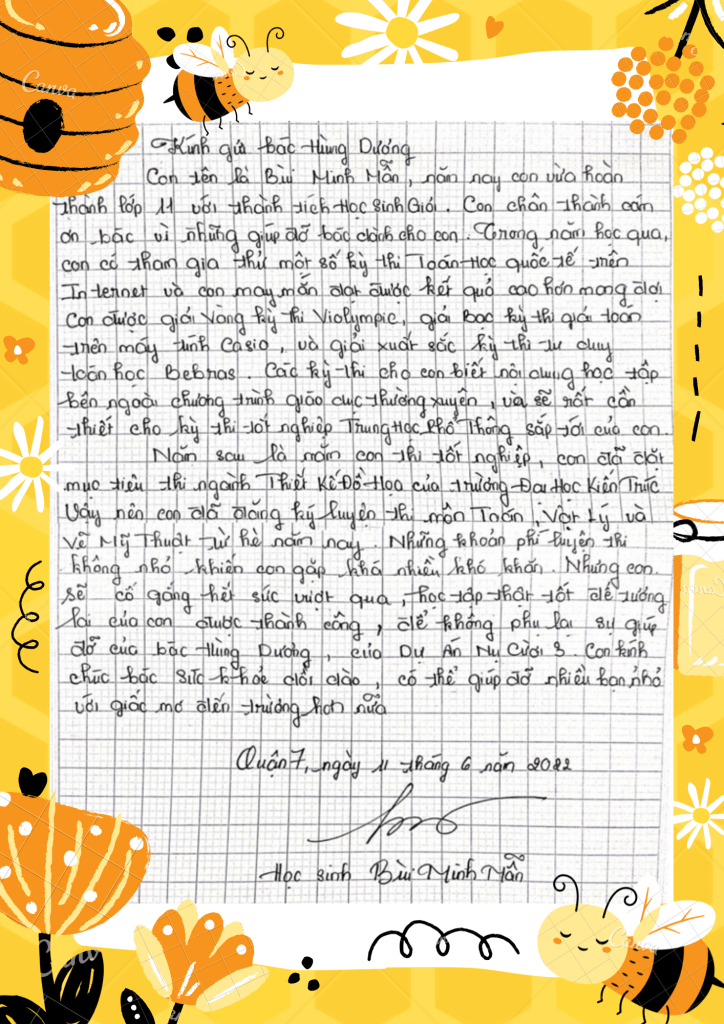 Kính gửi bác Hùng Dương
Con tên là Bùi Minh Mẫn, năm nay con vừa hoàn
thành lớp 11 với thành tích Học Sinh Giỏi. Con chân thành cám
ơn bác vì những giúp đỡ bác dành cho con. Trong năm học qua,
con có tham gia thử một số kỳ thi Toán Học quốc tế trên
Internet và con may mắn đạt được kết quả cao hơn mong đợi
Con được giải Vàng kỳ thi Violympic, giải Bạc kỳ thi giải toán
trên máy tính Casio, và giải xuất sắc kỳ thi tư duy
toán học Bebras. Các kỳ thi cho con biết nội dung học tập
bên ngoài chương trình giáo dục thường xuyên, và sẽ rất cần
thiết cho kỳ thi tốt nghiệp Trung Học Phổ Thông sắp tới của con.
Năm sau là năm con thi tốt nghiệp, con đã đặt
mục tiêu thi ngành Thiết Kế Đồ Họa của trường Đại Học Kiến Trúc
Vậy nên con đã đăng ký luyện thi môn Toán, Vật Lý và
Vẽ Mỹ Thuật từ hè năm nay. Những khoản phí luyện thi
không nhỏ khiến con gặp khá nhiều khó khăn. Nhưng con
sẽ cố gắng hết sức vượt qua, học tập thật tốt để tương
lai của con được thành công, để không phụ lại sự giúp
đỡ của bác Hùng Dương, của Dự Án Nụ Cười 3. Con kính
chúc bác sức khoẻ dồi dào, có thể giúp đỡ nhiều bạn nhỏ
với giấc mơ đến trường hơn nữa
Quận 7, ngày 11 tháng 6 năm 2022
Học sinh Bùi Minh Mẫn